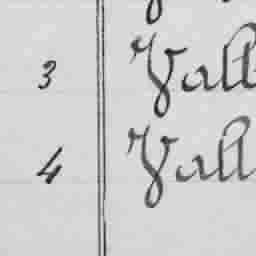 3 Vall
4 Vall